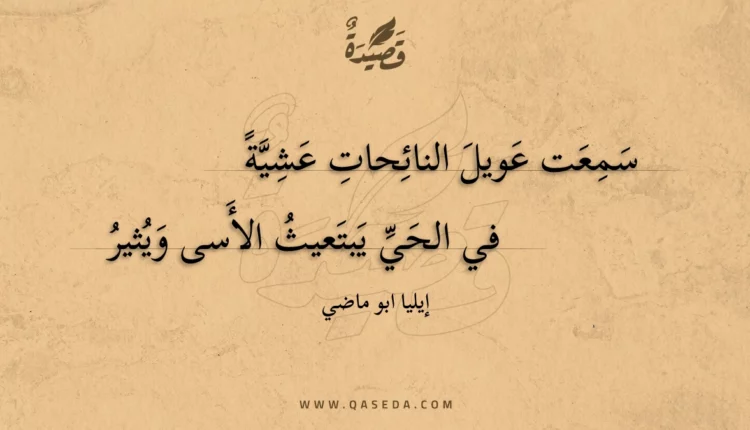 قَصِيْدَةٌ
سَمِعَت عَويلَ النائِحاتِ عَشِيَّةً
في الحَيِّ يَبتَعيثُ الأَسى وَيُثيرُ
إيليا ابو ماضي
WWW.QASEDA.COM